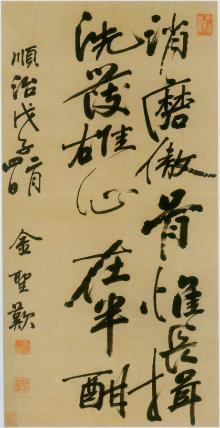 消磨傲骨惟長揖
洗發雄心在半酣
順治戊子
金聖歎